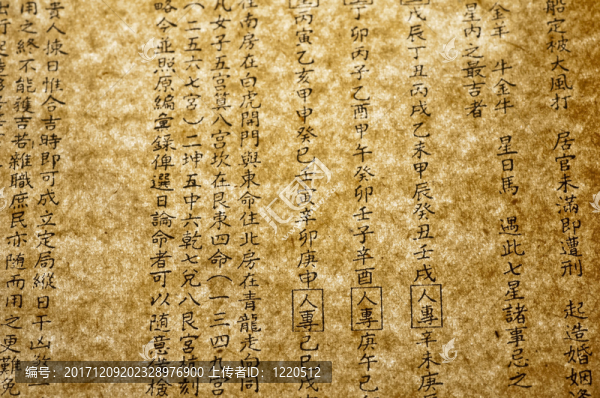 船定被大風打 居官未滿即遭刑 起造婚姻逢
金年 牛金牛 星日馬 遇此七星諸事忌之
星內之最吉者
戊辰丁丑丙戌乙未甲辰癸丑壬戌人專辛未庚辰
丁卯丙子乙酉甲午癸卯壬子辛酉人專庚午己
丙寅乙亥甲申癸巳壬寅辛亥卯庚申人專己巳戊
往南房在白虎開門與東命往北房在青龍走向同
凡女子五宮莫八宮坎在艮東四命(一三四九宮
(二五六七宮)二坤五中六乾七兌八艮宮
略今並照原編彙錄俾選日論命者可以隨意
貴人悚日惟合吉時即可成立定局縱日干凶
用之終不能獲吉若雜職庶民亦隨而用之更難免
編号:20171209202328976900 上传者ID:1220512